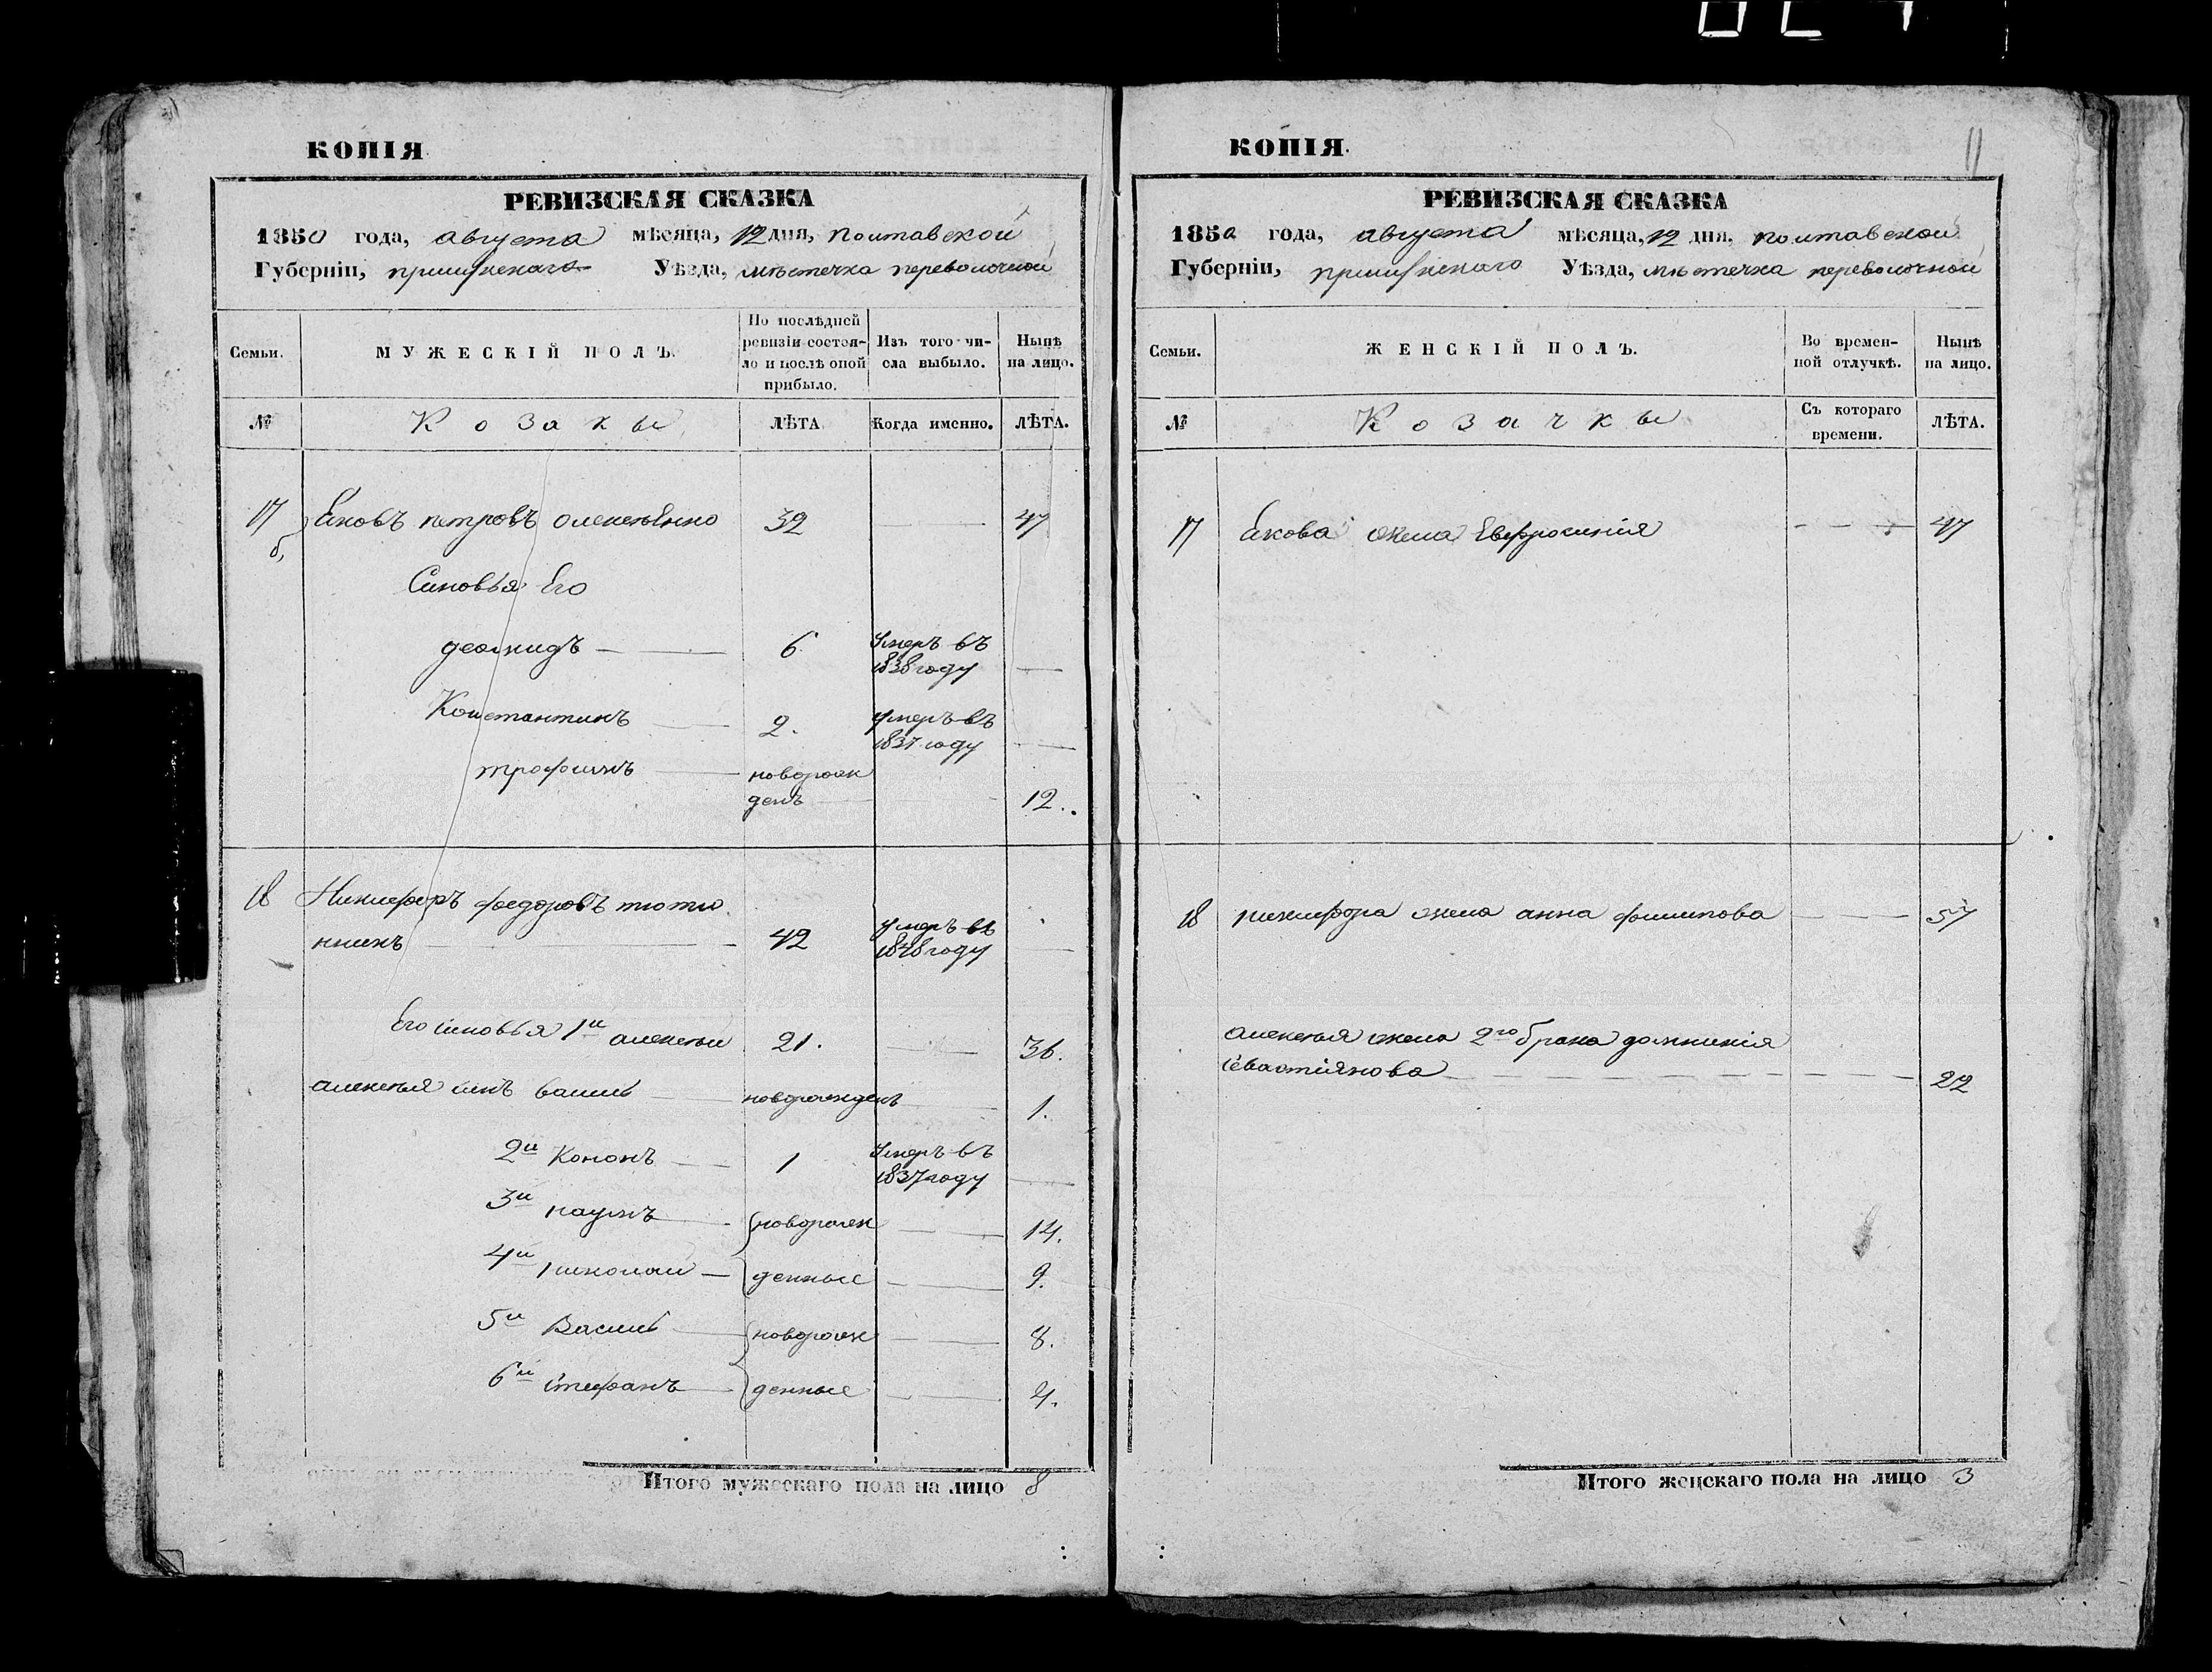 КОПІЯ.
РЕВИЗСКАЯ СКАЗКА
1850 года, августа мѣсяца, 12 дня, полтавской
Губерніи, прилуцкаго Уѣзда, мѣстечка переволочной
Семьи.
МУЖЕСКІЙ ПОЛЪ.
По послѣдней
ревизіи состоя-
ло и послѣ оной
прибыло.
Изъ того чи-
сла выбыло.
Нынѣ
на лицо.
№
Козаки
ЛѢТА.
Когда именно.
ЛѢТА.
17 Яковъ петровъ 32 47
Синовья Его
6 умеръ въ
1838 году
Константинъ 2. умеръ въ
1837 году
трофимъ новорож
денъ 12.
18 Никифоръ федоровъ тютю
нникъ 42 умеръ въ
1848 году
Его синовья 1й алексѣй 21. 36.
алексѣя синъ василь новорожденъ 1.
2й Кононъ 1 умеръ въ
1837 году
3й наумъ новорож 14.
4й николай денные 9.
5й Василь новорож 8.
6й стефанъ денные 4.
Итого мужескаго пола на лицо 8
КОПІЯ.
11
РЕВИЗСКАЯ СКАЗКА
1850 года, августа мѣсяца, 12 дня, полтавской
Губерніи, прилуцкаго Уѣзда, мѣстечка переволочной
Семьи.
ЖЕНСКІЙ ПОЛЪ.
Во времен-
ной отлучкѣ.
Нынѣ
на лицо.
№
Козачки
Съ котораго
времени.
ЛѢТА.
17 Якова жена Евфросинія 47
18 никифора жена анна филипова 57
алексѣя жена 2го брака домникія
севастіянова 22
Итого женскаго пола на лицо 3